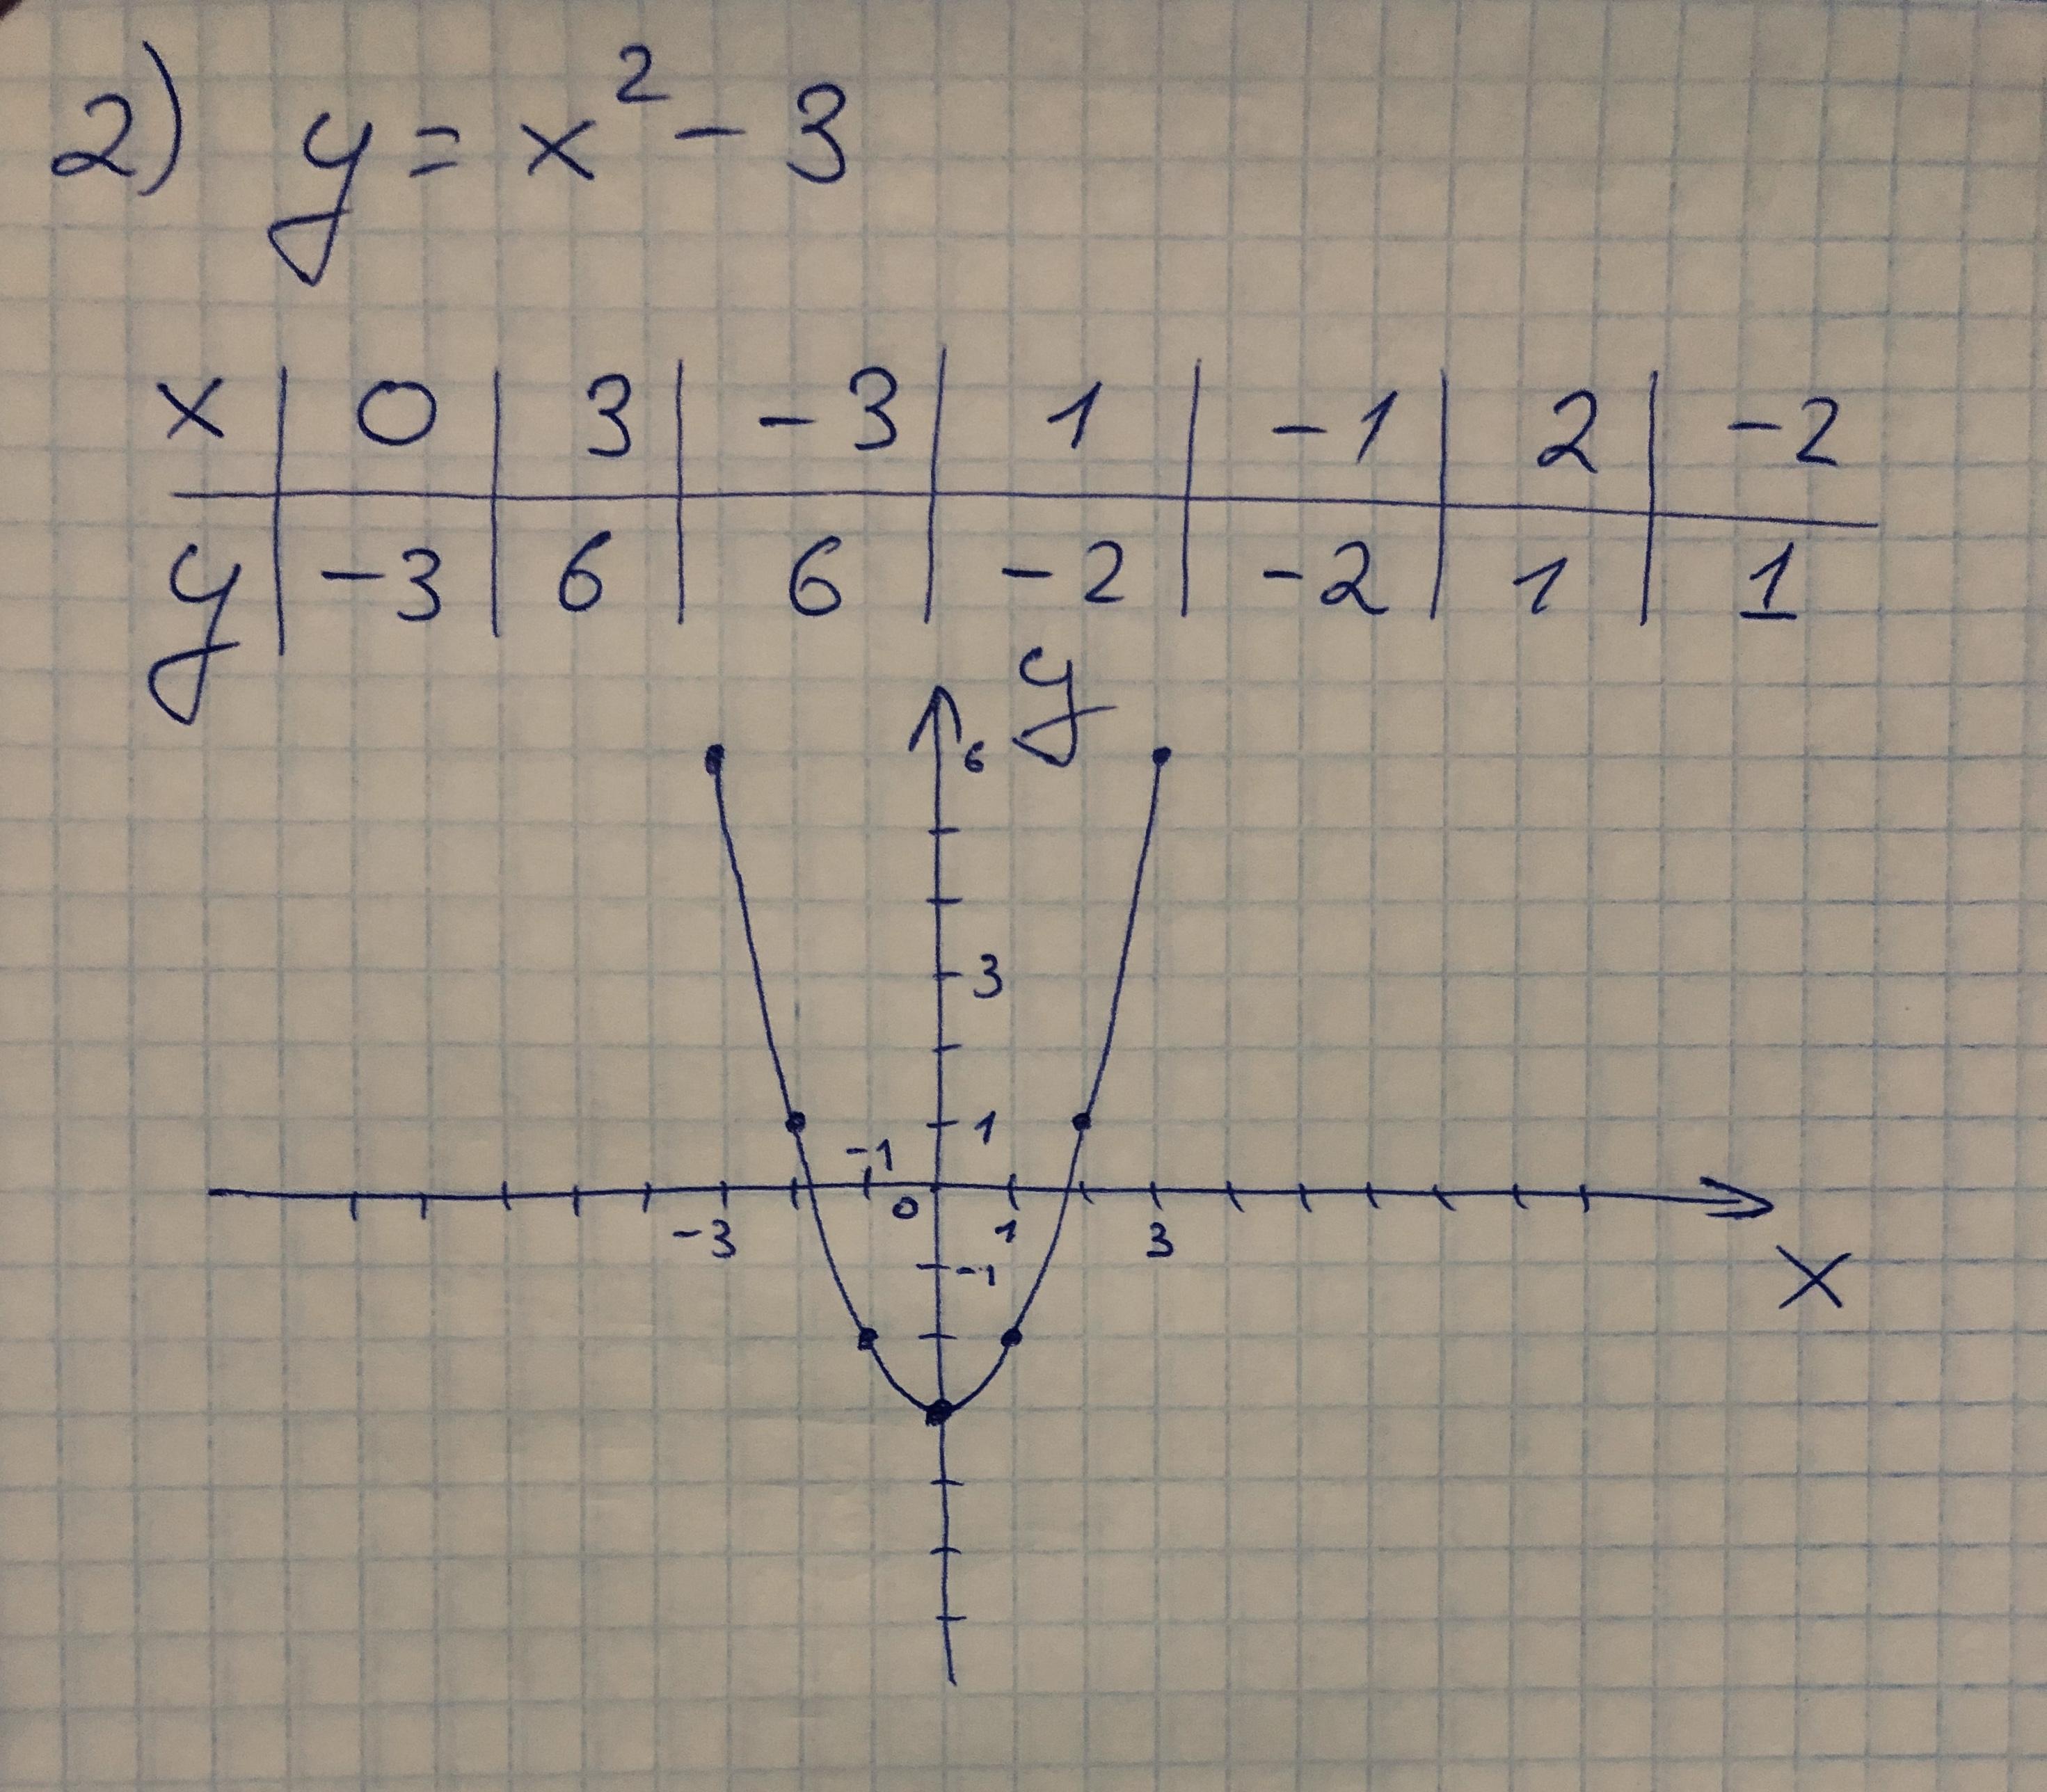 2) y = x² - 3
x | 0 | 3 | -3 | 1 | -1 | 2 | -2
y | -3 | 6 | 6 | -2 | -2 | 1 | 1
y
6
3
1
-1
0
-3 1 3
-1
x